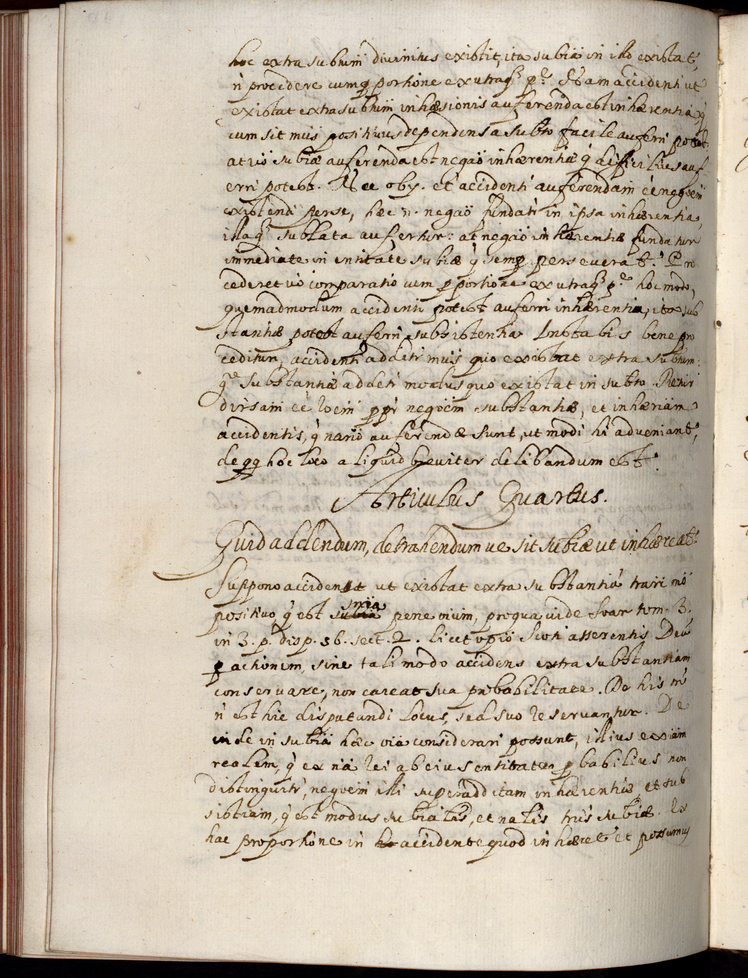 hoc extra subtum divinitus existit, ita subia in illo existat,
n procedere cum proportione ex utraq. pe. Nam accidenti ut
existat extra subtum inhæsionis auferenda est inhærentia, q
cum sit mus positivus dependens a subto facile auferri potest.
at vo subiæ auferenda est negao inhærentiæ q difficilius auf
erri potest. Nec oby. et accidenti auferendam ee negoem
existendi perse, hæc n. negao fundatr in ipsa inhærentia,
illaq. sublata aufertur: at negao inhærentiæ fundatur
immediate in entitate subiæ q semp perseverat. Pro
cederet vo comparatio cum pportione ex utraq. pe. hoc modo,
quemadmodum accidenti potest auferri inhærentia, ita sub
stantiæ potest auferri subsistentia. bene pro
ceditur, accidenti additr mus quo existat extra subtum:
qe. substantiæ additr modus quo existat in subto.
diversam ee roem ppr negoem substantiæ, et inhæriam
accidentis, q auferendæ sunt, ut modi hi adveniant,
de qq hoc loco aliquid breviter delibandum est.
Articulus Quartus.
Quid addendum, detrahendumve sit subiæ ut inhæreat.
Suppono accidens ut existat extra substantia mo
positivo q est pene mium, pro qua vide Suar tom. 3.
in 3. p. disp. 56. sect. 2. licet opio Scoti asserentis Deu
p actionem sine tali modo accidens extra substantiam
conservare, non careat sua probabilitate. De his tn
n est hic disputandi locus, sed suo reservantur. De
inde in subia hæc via considerari possunt, illius exiam
realem, q ex na rei ab eius entitate pbabilius non
distinguitr, negoem illi superadditam inhærentiæ et sub
sistiam, q est modus subialis, et nalis subiæ. Ex
hac proportione in accidente quod inhæret et possumus